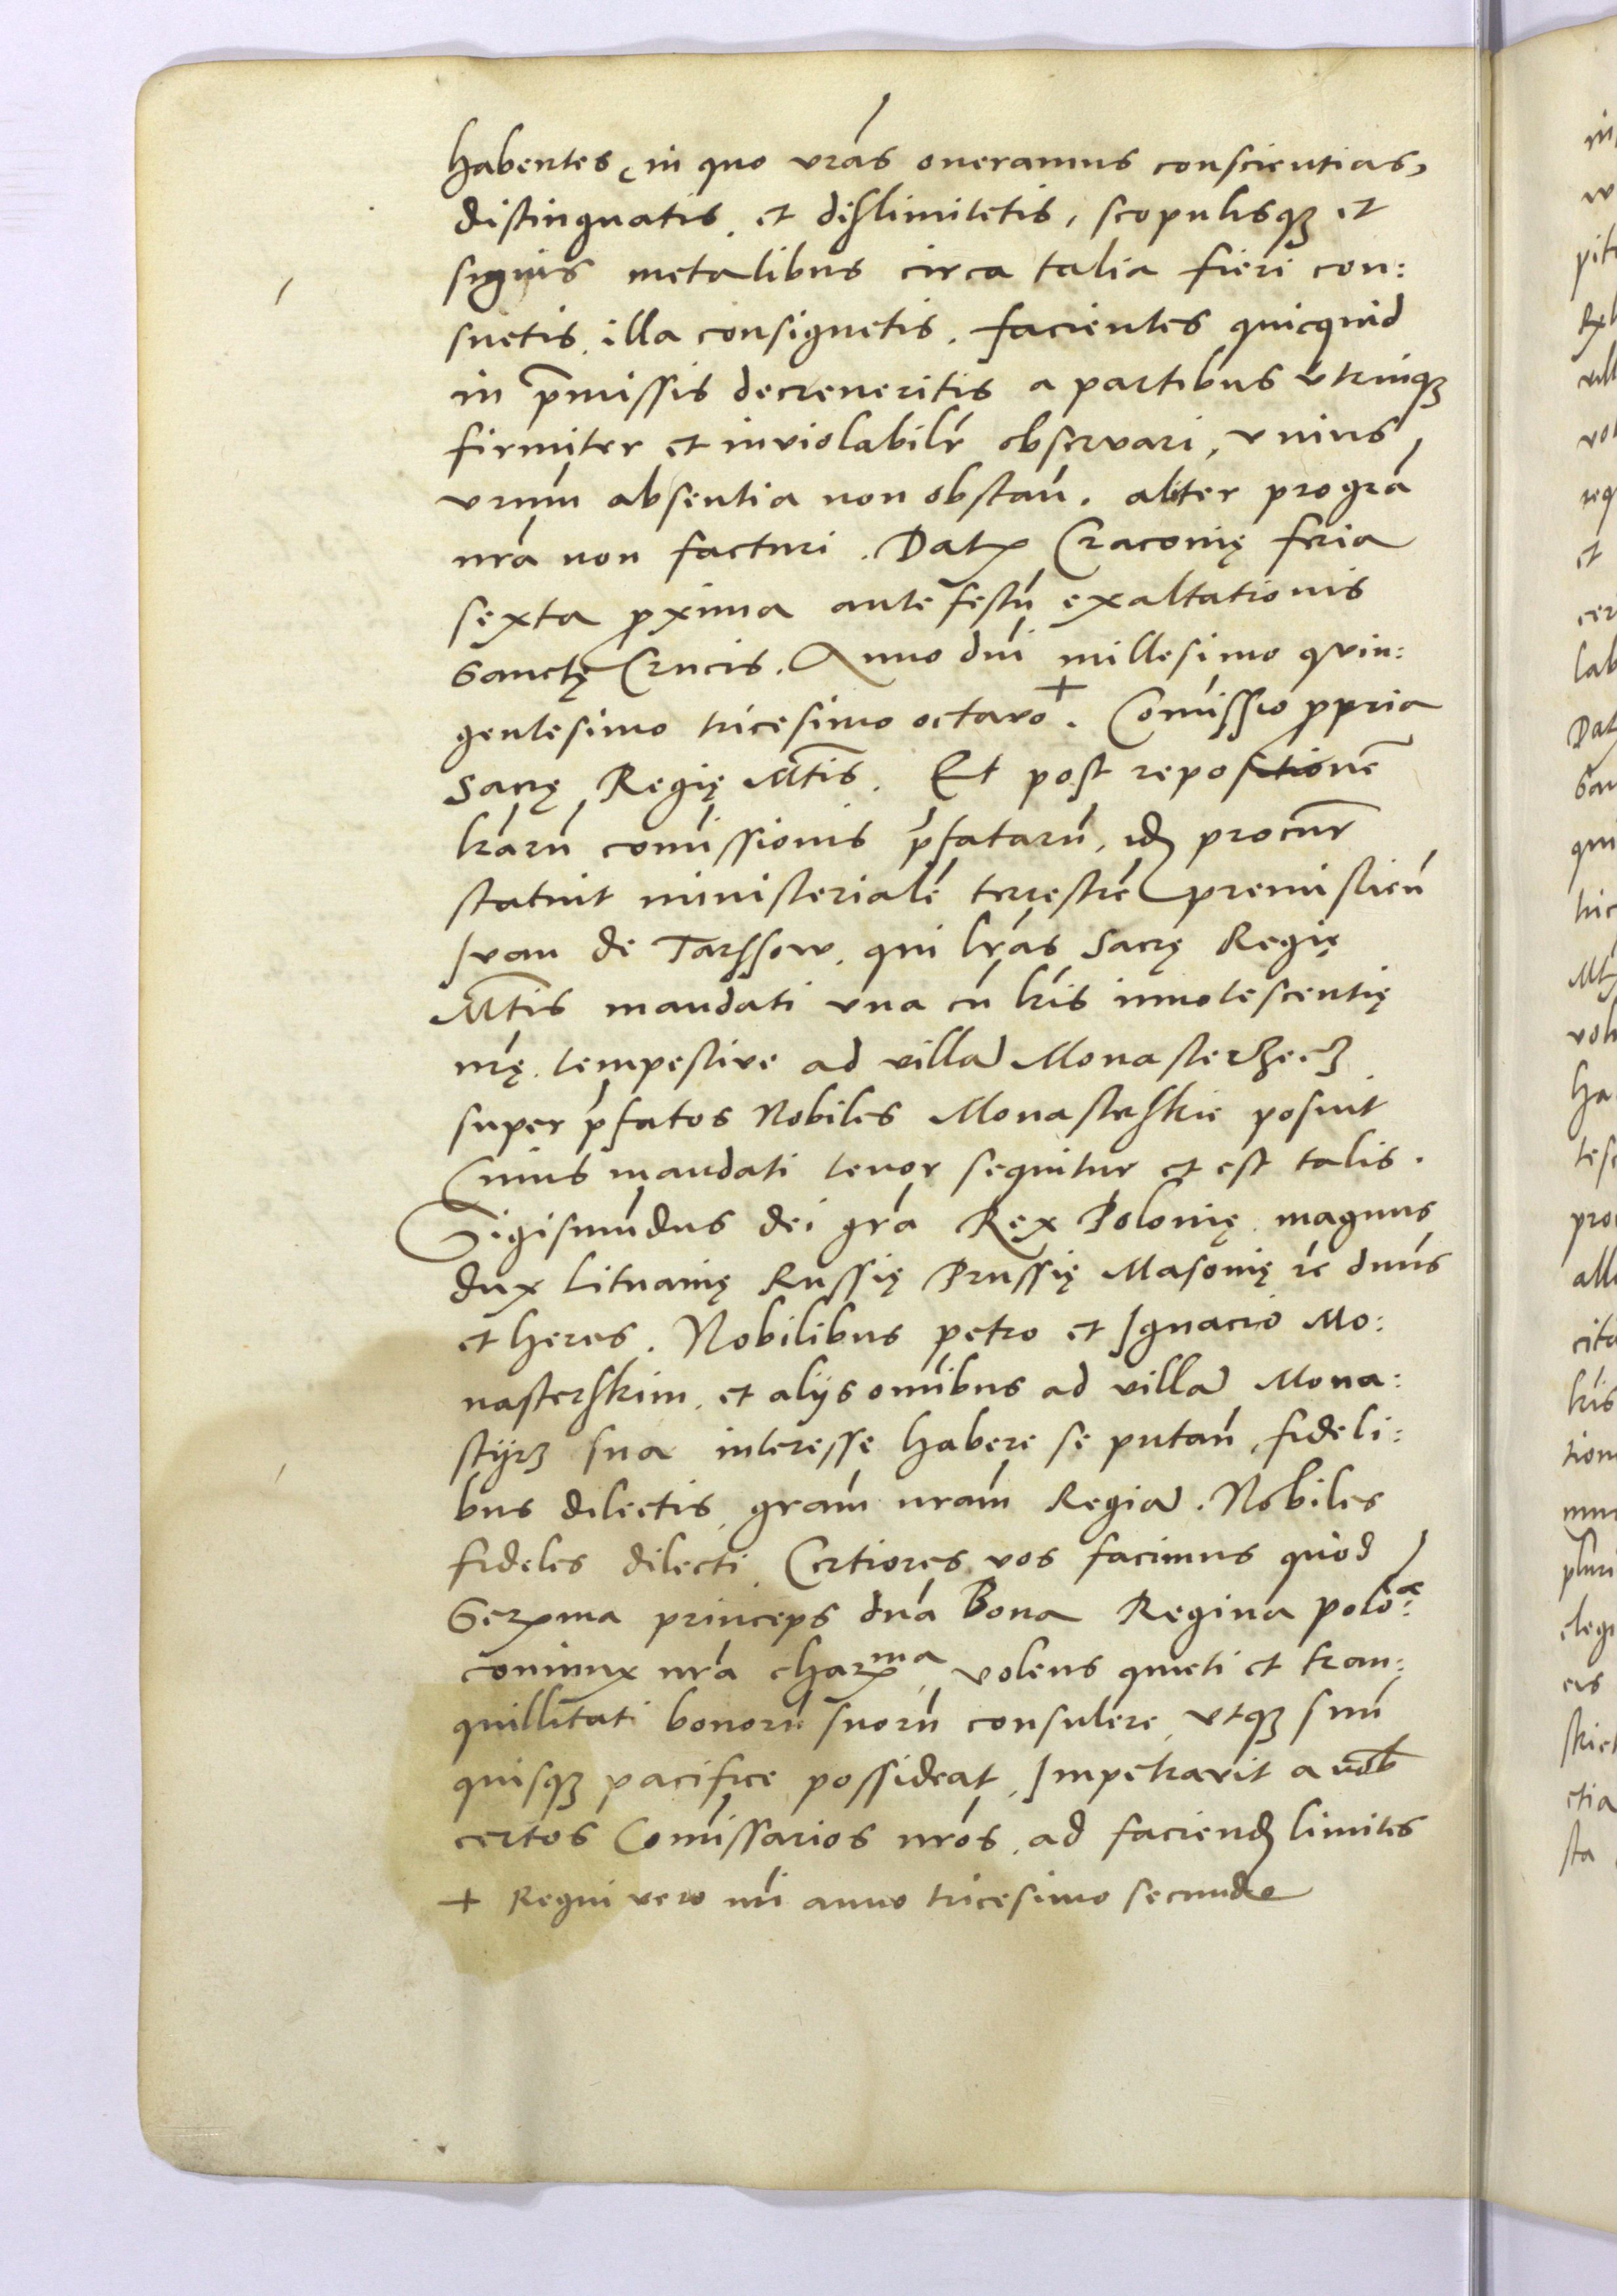 habentes, in quo vras oneramus conscientias,
distinguatis, et dislimitetis, scopulisqȝ et
signis metalibus circa talia fieri con:
suetis, illa consignetis. facientes quicquid
in pmissis decreueritis a partibus vtrinqȝ
firmiter et inviolabilr observari, vnius
vrum absentia non obstan. aliter pro gra
nra non facturi. Dat Cracovię feria
sexta pxima ante festu exaltationis
Sanctę Crucis. Anno dni millesimo qvin:
gentesimo tricesimo octavo +. Comissio ppria
Sacrę Regię Mtis. Et post repositione
lrarum comissionis pfataru, idȝ procur
statuit ministeriale terrestre premislien
Ivan de Tarssow, qui lras Sacrę Regię
Mtis mandati vna cu lris innotescentię
nrę, tempestive ad villa Monasterzecz
super pfatos Nobiles Monasterskie posuit
Cuius mandati tenor sequitur et est talis.
Sigismudus dei gra Rex Polonię, magnus
dux Lituanię Russię Prussię Masovię ꝛc dnus
et heres. Nobilibus petro et Ignacio Mo:
nasterskim, et alijs omibus ad villa Mona:
stijrȝ sua interesse habere se putan, fideli:
bus dilectis, gram nram Regia. Nobiles
fideles dilecti, Certiores vos facimus quod
Serma princeps dna Bona Regina poloae:
coniunx nra charma volens quieti et tran:
quillitati bonoru suoru consulere, vtqȝ suu
quisqȝ pacifice possideat, Impetravit a nob
certos Comissarios nros, ad faciendȝ limites
+ Regni vero nri anno tricesimo secundo